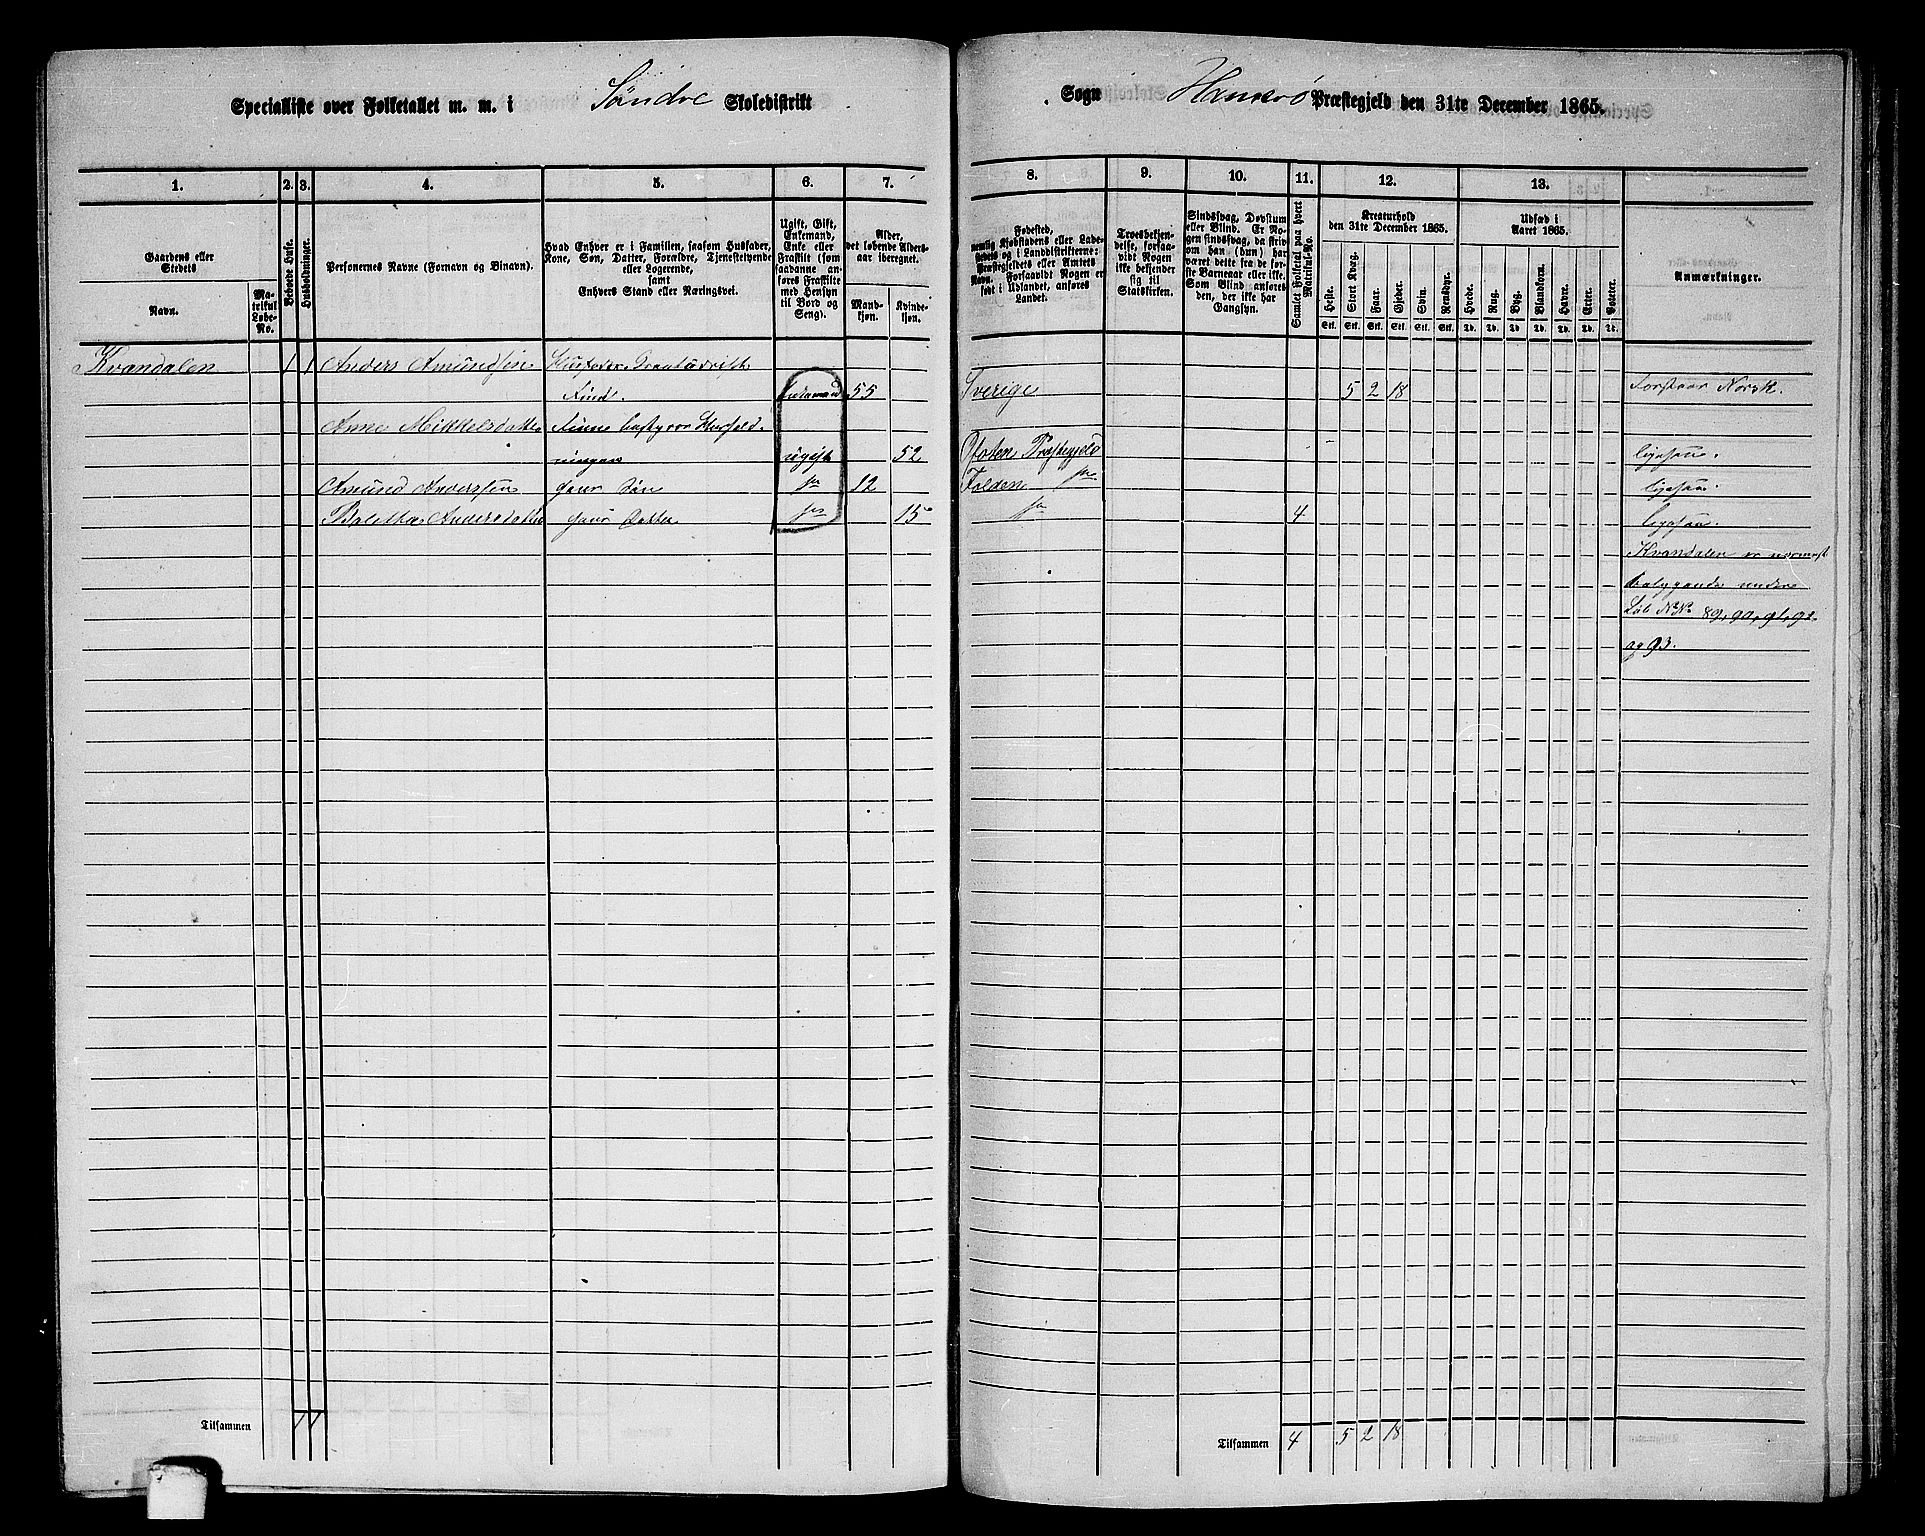 Specialliste over Folketallet m. m. i Söndre Skoledistrikt
Sogn Hamerö Præstegjeld den 31te December 1865.
1. 2. 3. 4. 5. 6. 7.
8. 9. 10. 11. 12. 13.
Gaardens eller Stedets
Navn.
Matrikul Løbe-No.
Beboede Huse.
Husholdninger.
Personernes Navne (Fornavn og Binavn).
Hvad Enhver er i Familien, saasom Husfader,
Kone, Søn, Datter, Forældre, Tjenestetyende
eller Logerende,
samt
Enhvers Stand eller Næringsvei.
Ugift, Gift,
Enkemand,
Enke eller
Fraskilt (som
saadanne anføres Fraskilte
med Hensyn
til Bord og
Seng).
Alder,
det løbende Alders-
aar iberegnet.
Mandkjøn.
Kvindekjøn.
Fødested,
nemlig Kjøbstadens eller Lade-
stedets og i Landdistrikterne:
Præstegjeldets eller Amtets
Navn. Forsaavidt Nogen er
født i Udlandet, anføres
Landet.
Troesbekjen-
delse, forsaa-
vidt Nogen
ikke bekjender
sig til
Statskirken.
Sindssvag, Døvstum
eller Blind. Er No-
gen sindssvag, da skriv
om han (hun) har
været dette fra de før-
ste Barneaar eller ikke.
Som Blind anføres
den, der ikke har
Gangsyn.
Samlet Folketal paa hvert Matrikul-No.
Kreaturhold
den 31te December 1865.
Heste. Stort Kvæg. Faar. Gjeder. Svin. Rensdyr.
Stk. Stk. Stk. Stk. Stk. Stk.
Udsæd i
Aaret 1865.
Hvede. Rug. Byg. Blandkorn. Havre. Erter. Poteter.
Td. Td. Td. Td. Td. Td. Td.
Anmærkninger.
Kvandalen 1 1 Anders Amundsen Husfader
Find. Enkemand 55 Sverige 5 2 18 Forstaar Norsk.
Anne Mikkelsdatter Finne bestyrer Hushold-
ningen ugift 52 Ofoten Præstegjeld ligesaa.
Amund Anderssen hans Søn 12 Folden ligesaa.
Andersdatter hans Datter 15 4 ligesaa.
Kvandalen er nærmest
beliggende under
Løb No No 89, 90, 91, 92
og 93.
Tilsammen 1 1
Tilsammen 4 5 2 18